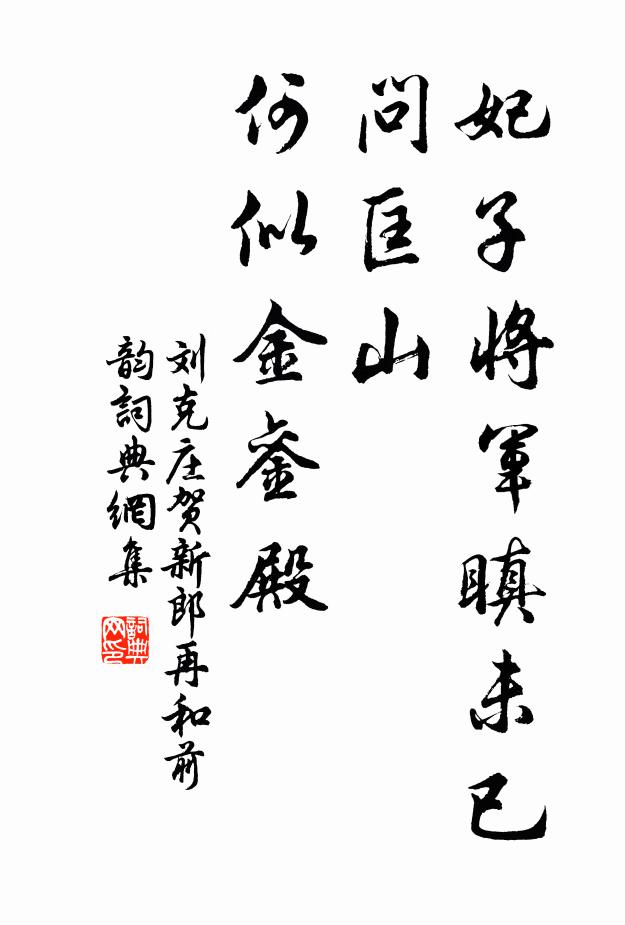 妃子将军瞋未已
问匡山
何似金銮殿
刘克庄贺新郎再和前
韵詞典網集
詞典
网印